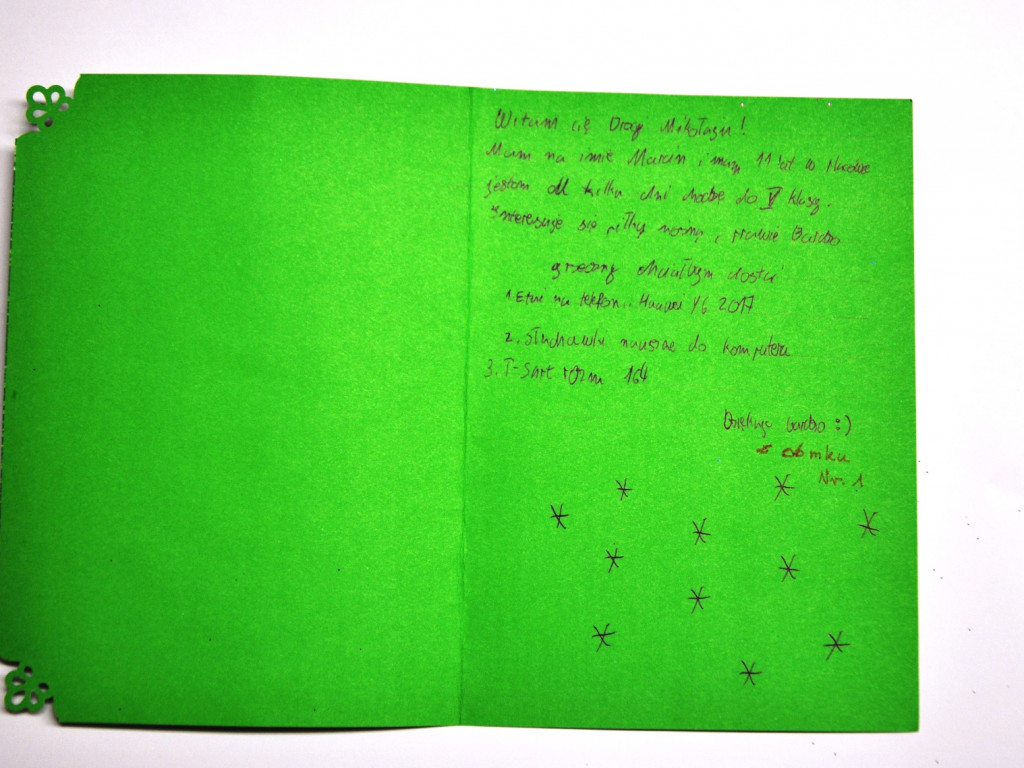 Witam cię Drogi Mikołaju!
Mam na imie Marcin i mam 11 lat w
jestem od kilku dni chodze do V klasy.
interesuje się piłką nożną, prawie Bardzo
grzeczny chciałbym dostać
1. Etui na telefon.. Huawei Y6 2017
2. słuchawki nauszne do komputera
3. T-Sart rozm 164
Dziękuje bardzo :)
z domku
Nr. 1